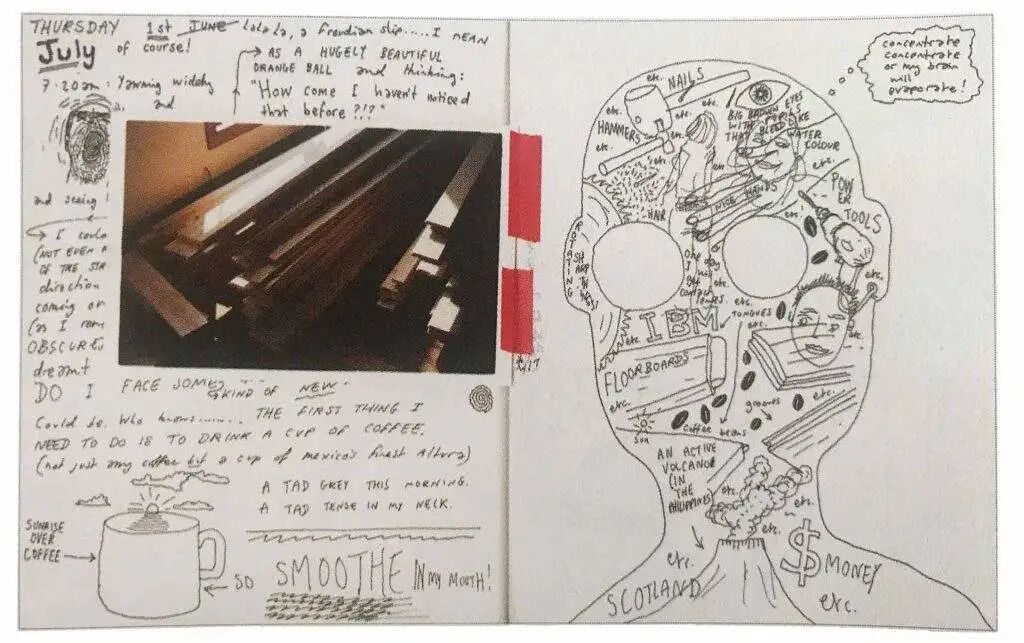 THURSDAY 1st JUNE LaLaLa, a freudian slip.....I MEAN
July of course!
7.20am: Yawning widely
and
AS A HUGELY BEAUTIFUL
ORANGE BALL and thinking:
"How come I haven't noticed
that before?!?"
and seeing
I could
(NOT EVEN A
OF THE
direction
coming or
(as I
OBSCURE
dreamt
DO I FACE SOME
KIND OF NEW.
Could be. Who knows....... THE FIRST THING I
NEED TO DO IS TO DRINK A CUP OF COFFEE.
(not just any coffee but a cup of mexico's finest Altura)
A TAD GREY THIS MORNING.
A TAD TENSE IN MY NECK.
SUNRISE
OVER
COFFEE
SO SMOOTHE IN MY MOUTH!
concentrate
concentrate
or my brain
will
evaporate!
etc.
NAILS
etc.
HAMMERS
etc.
etc.
etc.
etc.
HAIR
BIG BROWN EYES
WITH
THAT BLEED LIKE
WATER
COLOUR
etc.
etc.
NICE HANDS
etc.
POW
ER
TOOLS
etc.
ROTATING
SHARP
THINGS
one day
I will
get etc.
contact
lenses.
etc.
TONGUES
etc.
IBM
etc.
FLOORBOARDS
etc.
sun
coffee beans
grooves
etc.
AN ACTIVE
VOLCANOE
(IN
THE
PHILIPPINES)
etc.
etc.
etc.
etc.
SCOTLAND
$ MONEY
etc.